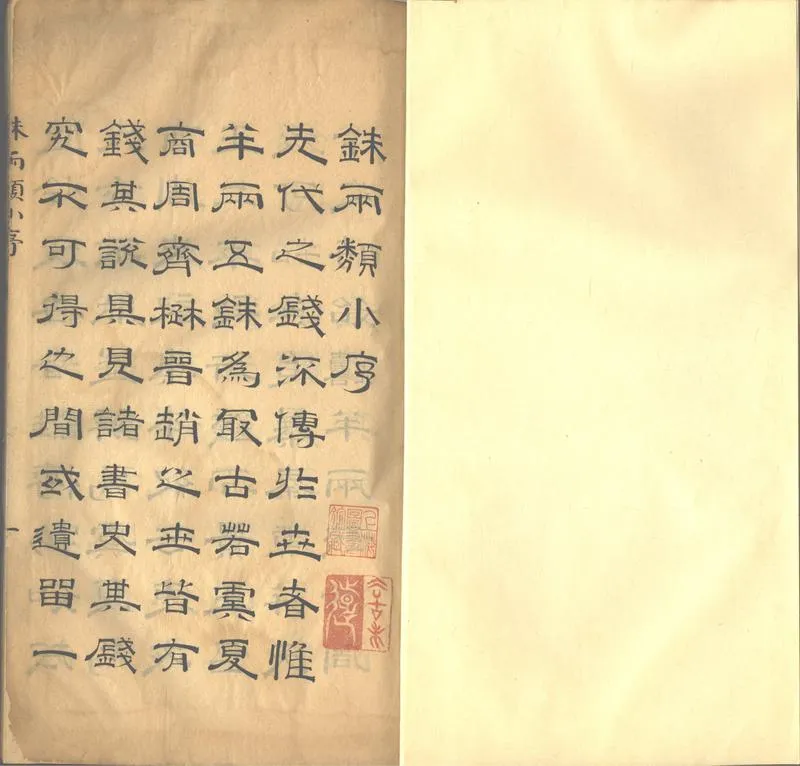 銖兩類小序
先代之錢流傳於世者惟
半兩五銖為㝡古若虞夏
商周齊楚晉趙之世皆有
錢其說具見諸書史其錢
究不可得之間或遺留一
銖兩類小序
一
上海圖書館藏